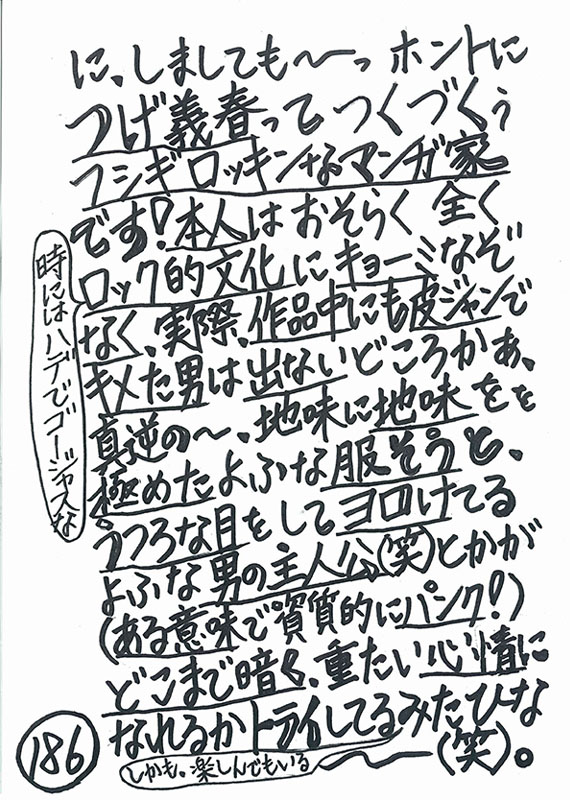 に、しましても〜っ ホントに
つげ義春ってつくづくぅ
フシギロッキンなマンガ家
です!本人はおそらく全く
ロック的文化にキョーミなぞ
時にはハデでゴージャスな
なく、実際、作品中にも皮ジャンで
キメた男は出ないどころかぁ、
真逆の〜、地味に地味をを
極めたよふな服そうと、
うつろな目をしてヨロけてる
よふな男の主人公(笑)とかが
(ある意味で資質的にパンク!)
どこまで暗く、重たい心情に
なれるかトライしてるみたひな
しかも、楽しんでもいる
〜(笑)。
186